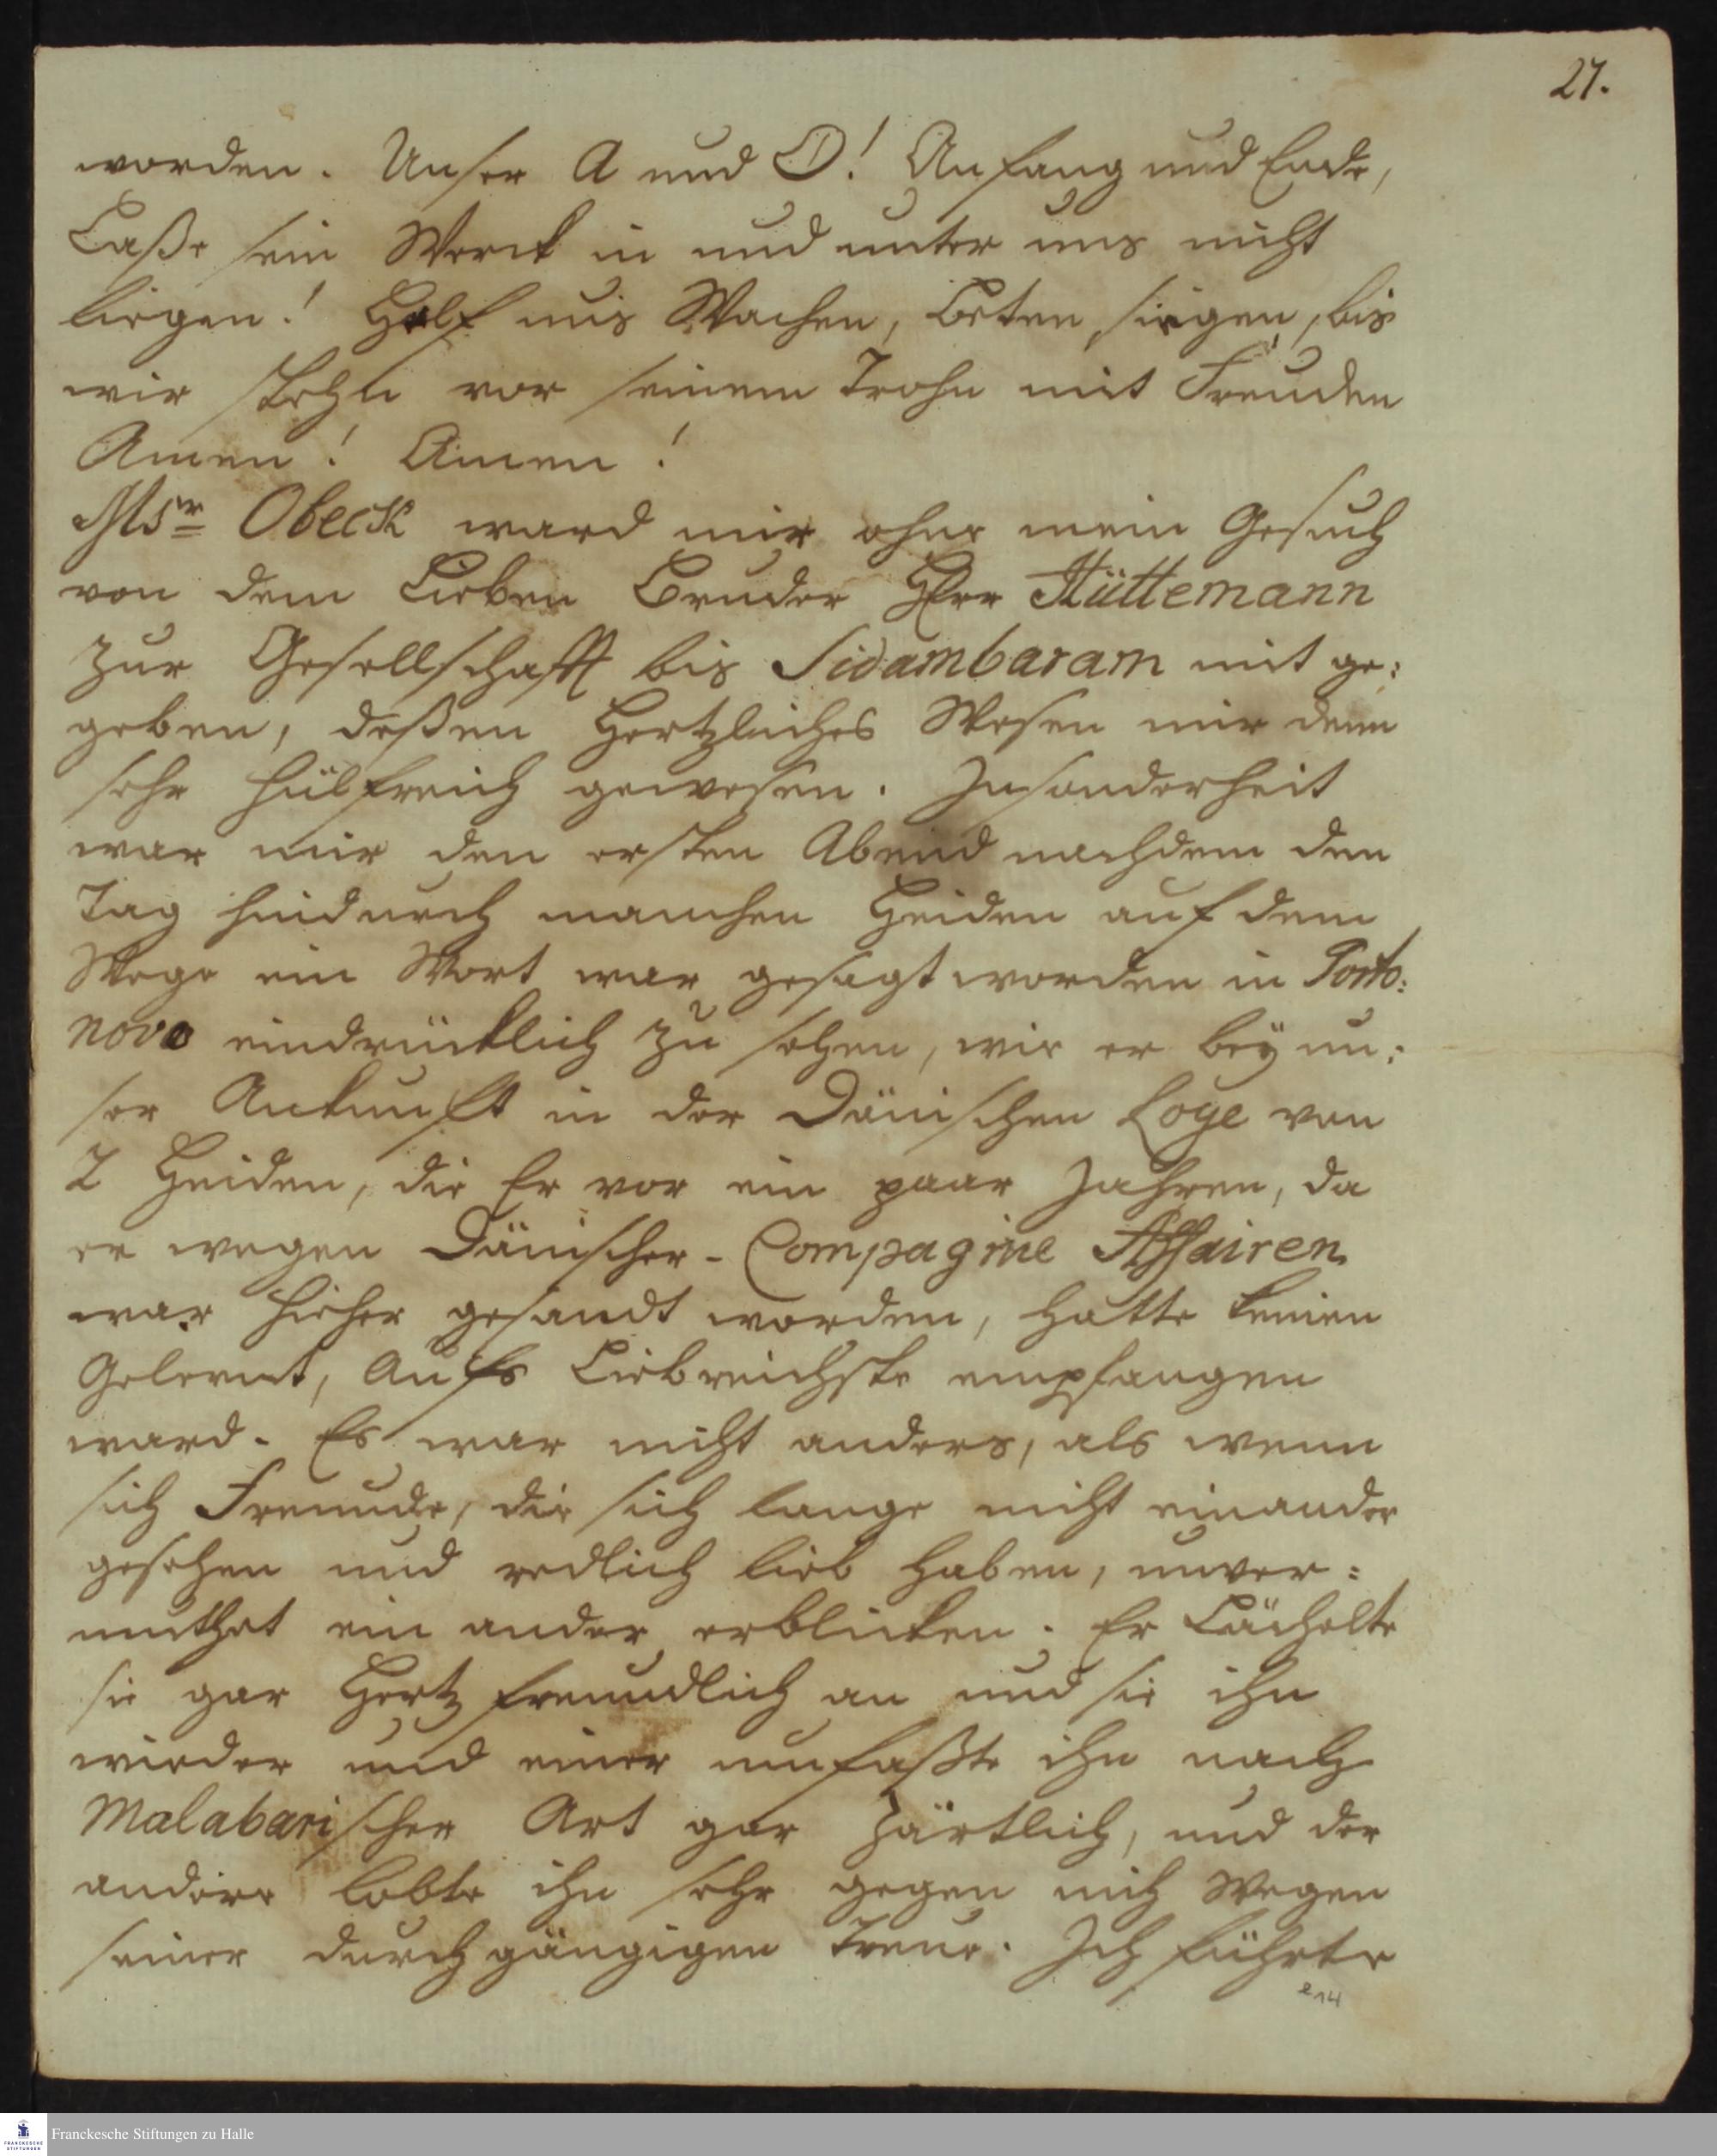 27.
worden. Unser A und O! Anfang und Ende,
Laße sein Werck in und unter uns nicht
liegen! Helf uns Wachen, Beten, siegen, bis
wir stehn vor seinem Trohn mit Freuden
Amen! Amen!
Msr Obeck ward mir ohne mein Gesuch
von dem Lieben Bruder Herr Hüttemann
zur Gesellschafft bis Sidambaram mit ge:
geben, deßen Hertzliches Wesen mir denn
sehr hülfreich gewesen. Insonderheit
war mir den ersten Abend nachdem den
Tag hindurch manchen Heiden auf dem
Wege ein Wort war gesagt worden in Porto:
novo eindrücklich zu sehen, wie er bey un:
ser Ankunfft in der Dänischen Loge von
2 Heiden, die Er vor ein paar Jahren, da
er wegen Dänischer-Compagnie Affairen
war hieher gesandt worden, hatte kennen
Gelernt, Aufs Liebreichste empfangen
ward. Es war nicht anders, als wenn
sich Freunde, die sich lange nicht einander
gesehen und redlich lieb haben, unver:
muthet ein ander erblicken. Er Lächelte
sie gar Hertz freundlich an und sie ihn
wieder und einer umfaßte ihn nach
Malabarischer Art gar zärtlich, und der
andere lobte ihn sehr gegen mich Wegen
seiner durchgängigen Treue. Ich führte
Franckesche Stiftungen zu Halle